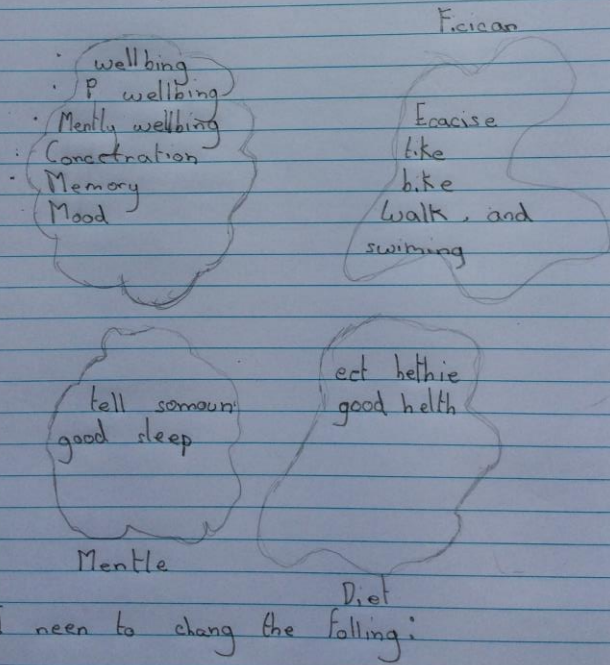 wellbing
P wellbing
Mently wellbing
Concetration
Memory
Mood
Ficican
Ecacise
tike
bike
Walk, and
swiming
tell somoun
good sleep
Mentle
ect helthie
good helth
Diet
I neen to chang the folling: